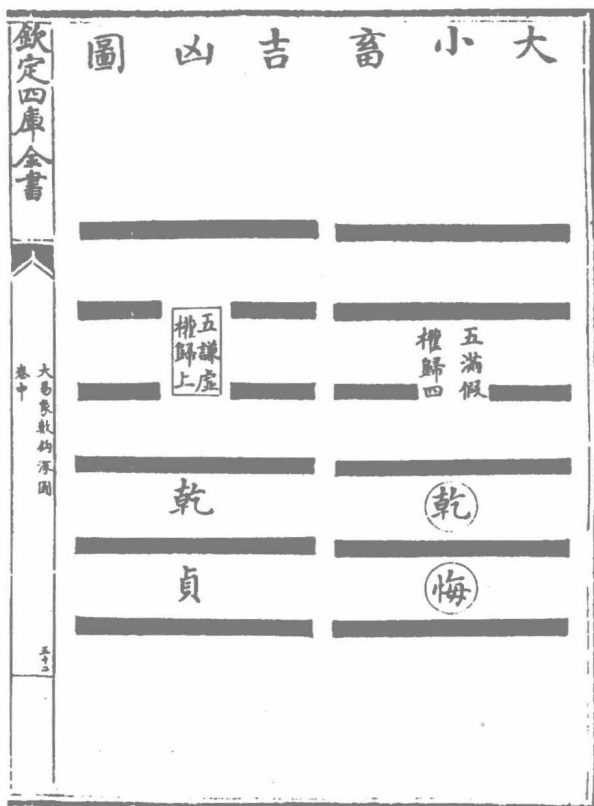 大小畜吉凶圖
五滿假
權歸四
乾
悔
五謙虛
權歸上
乾
貞
欽定四庫全書
大易象數鈎深圖
卷中
三十二